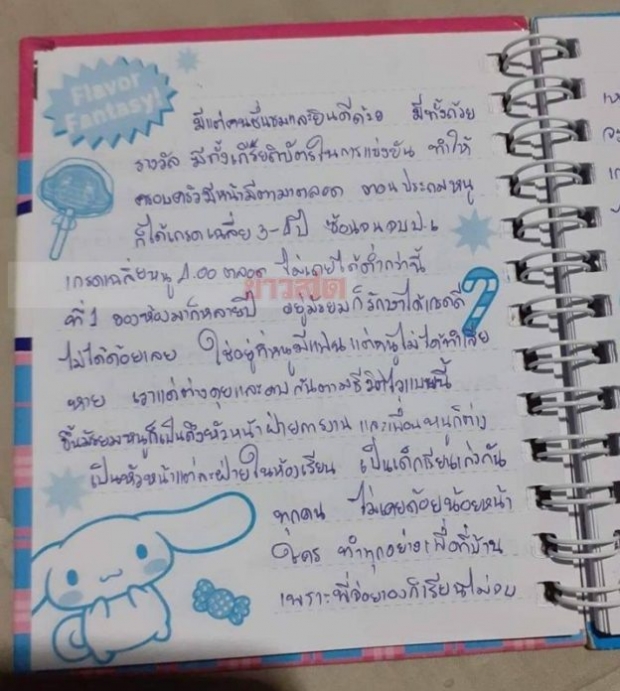 Flavor
Fantasy!
มีแต่คนชื่นชมและยินดีด้วย มีทั้งถ้วย
รางวัล มีทั้งเกียรติบัตรในการแข่งขัน ทำให้
ครอบครัวมีหน้ามีตามาตลอด ตอนประถมหนู
ก็ได้เกรดเฉลี่ย 3-4 ปี ซ้อนจนจบป.6
เกรดเฉลี่ยหนู 4.00 ตลอด ไม่เคยได้ต่ำกว่านี้
ข่าวสด
ที่ 1 ของห้องมาก็หลายปี อยู่มัธยมก็รักษาได้เกรดดี
ไม่ได้ด้อยเลย ใช่อยู่ที่หนูมีแฟน แต่หนูไม่ได้ทำเสีย
หาย เราแค่ต่างคุยและคบกันตามชีวิตไวแบบนี้
ขึ้นมัธยมหนูก็เป็นถึงหัวหน้าฝ่ายการงาน และเพื่อนหนูก็ต่าง
เป็นหัวหน้าแต่ละฝ่ายในห้องเรียน เป็นเด็กเรียนเก่งกัน
ทุกคน ไม่เคยด้อยน้อยหน้า
ใคร ทำทุกอย่างเพื่อที่บ้าน
เพราะพี่จ๋อยเองก็เรียนไม่จบ